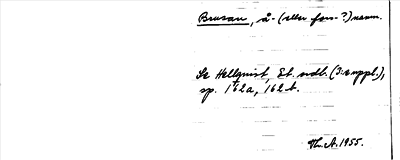 Brusan, å- (eller fors-?) namn.
Se Hellquist, Et. ordb. (3:e uppl.),
sp. 162a, 162b.
A. 1955.